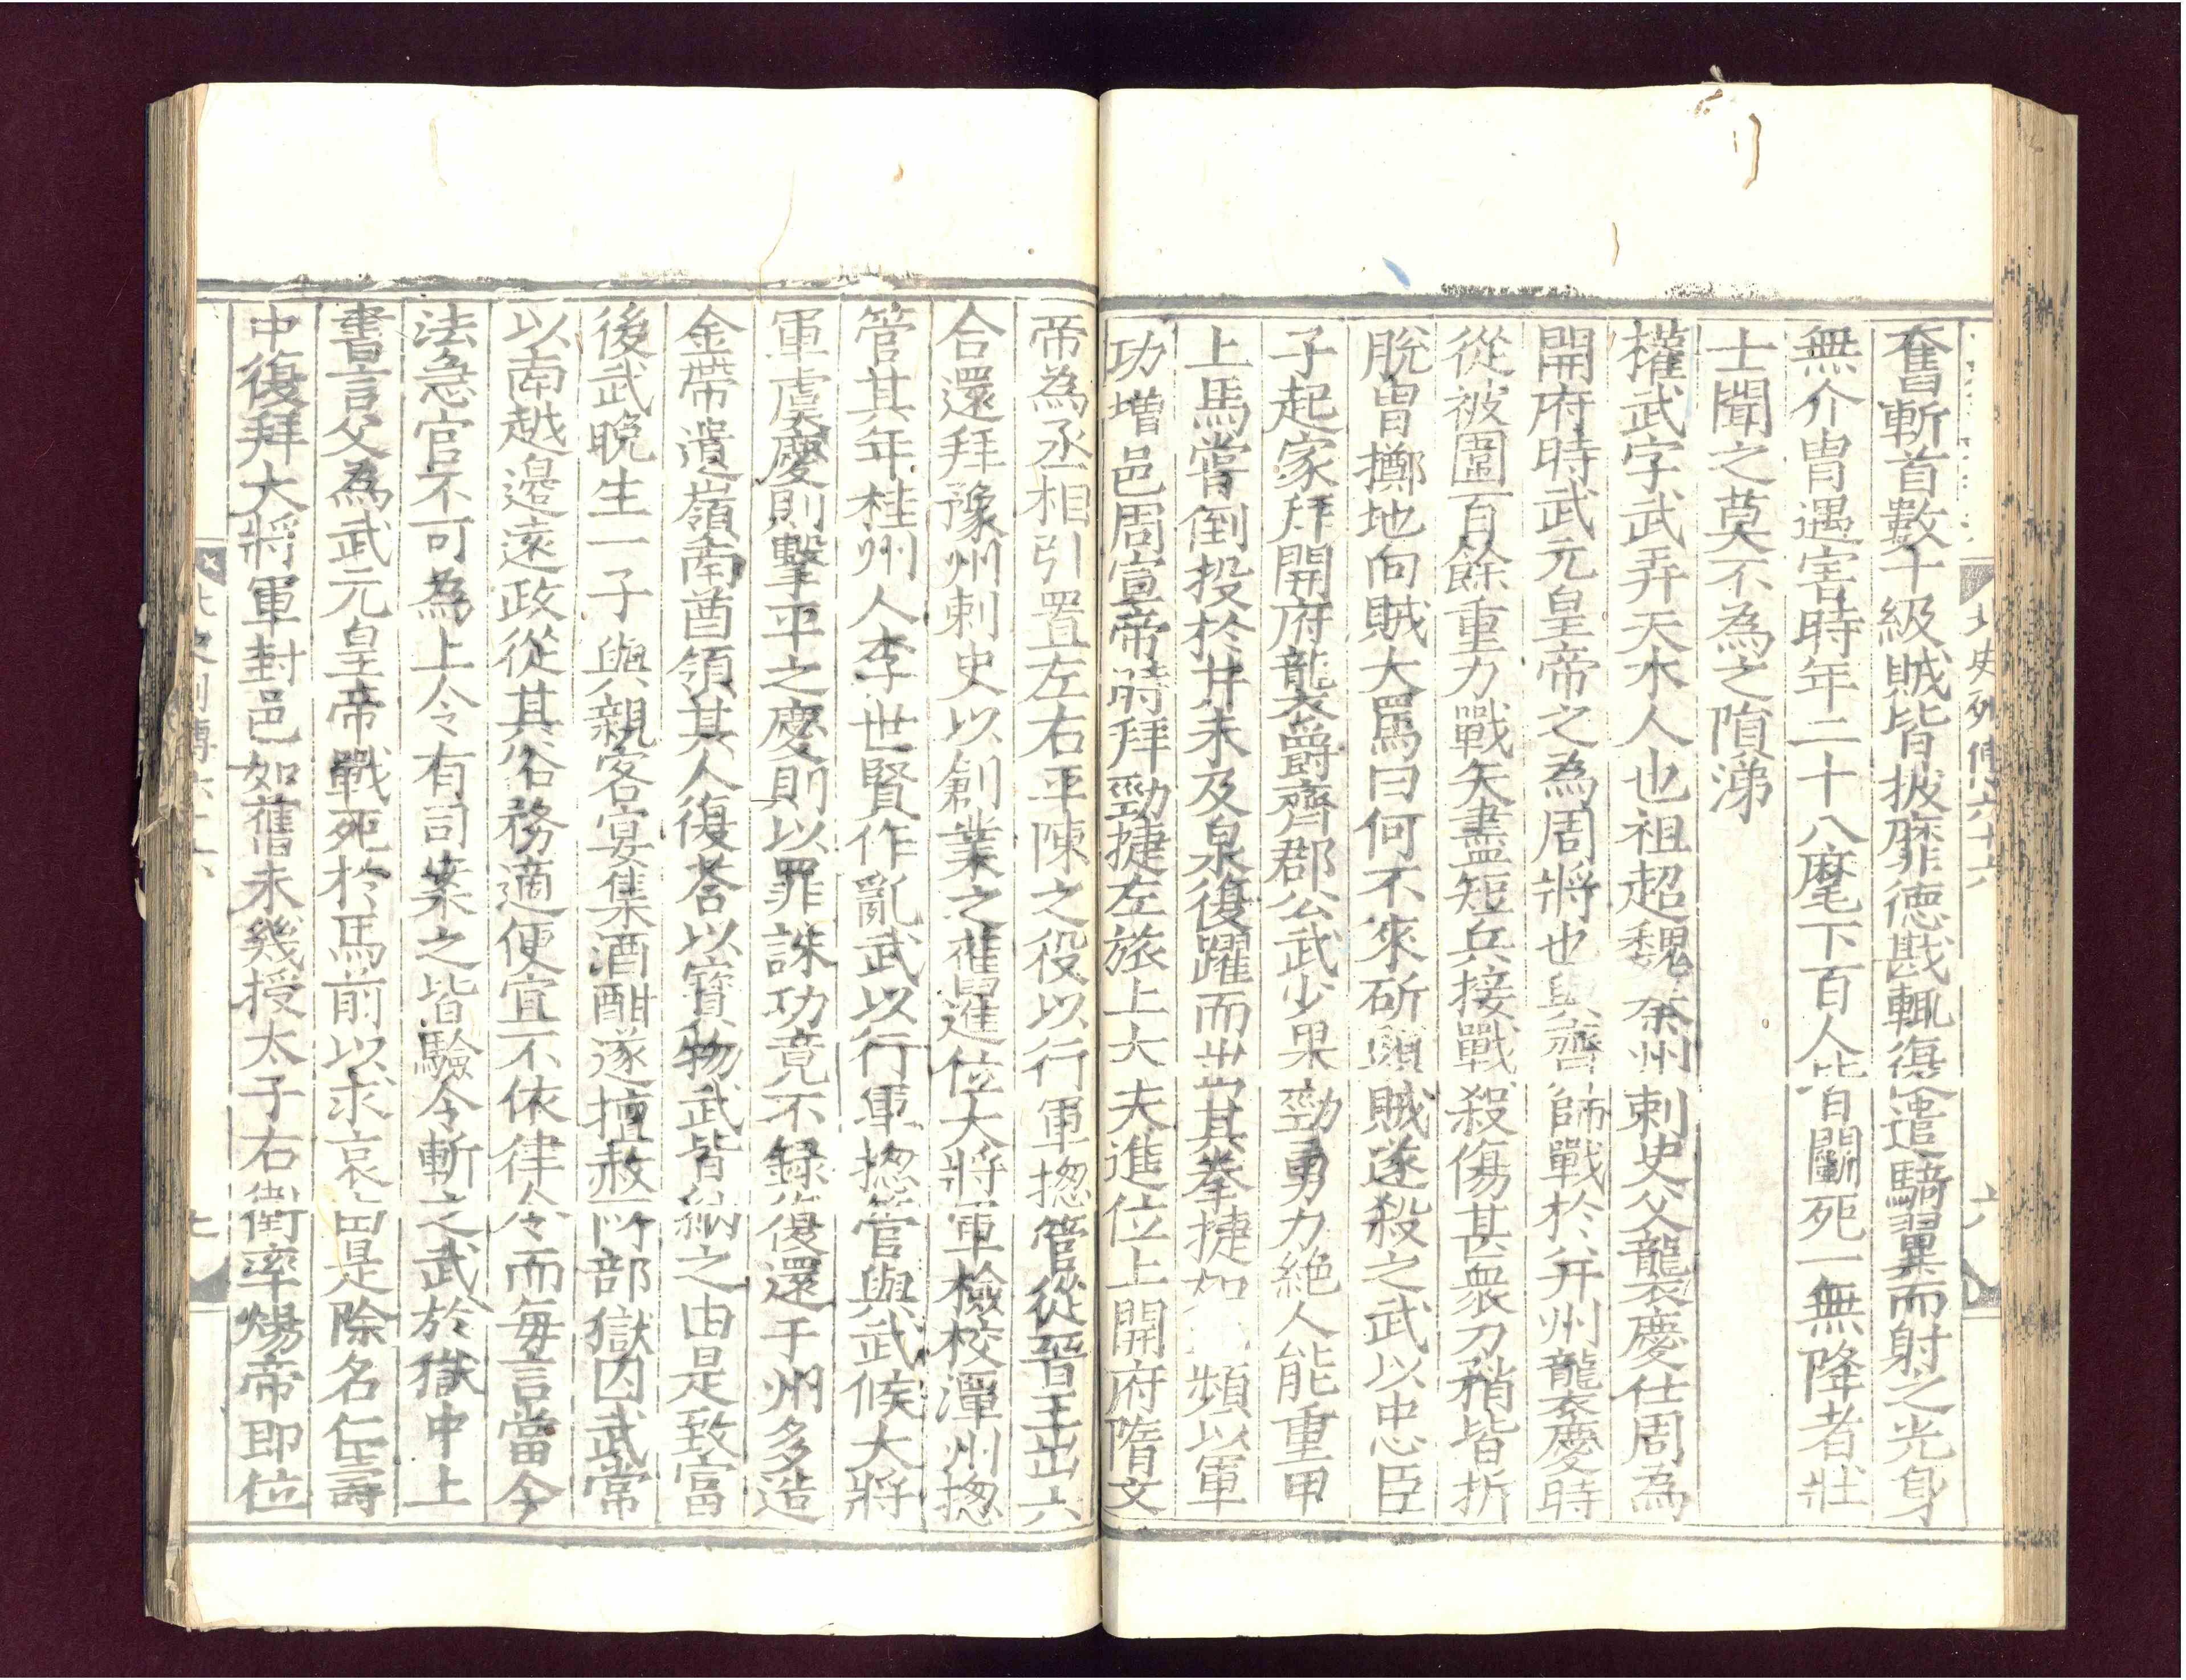 北史列傳六十六
奮斬首數千級賊皆披靡德戡輒復遣騎翼而射之光身
無介胄遇害時年二十八麾下百人皆鬬死一無降者壯
士聞之莫不為之隕涕
權武字武弄天水人也祖超魏秦州刺史父龍襲慶仕周為
開府時武元皇帝之為周將也與齊師戰於并州龍襲慶時
從被圍百餘重力戰矢盡短兵接戰殺傷甚衆刀矟皆折
脫胄擲地向賊大罵曰何不來斫頭賊遂殺之武以忠臣
子起家拜開府襲爵齊郡公武少果勁勇力絶人能重甲
上馬嘗倒投於井未及泉復躍而出其拳捷如 頻以軍
功增邑周宣帝時拜勁捷左旅上大夫進位上開府隋文
帝為丞相引置左右平陳之役以行軍摠管從晉王出六
合還拜豫州刺史以創業之舊進位大將軍檢校潭州摠
管其年桂州人李世賢作亂武以行軍摠管與武候大將
軍虞慶則擊平之慶則以罪誅功竟不錄復還于州多造
金帶遺嶺南酋領其人復荅以寶物武皆納之由是致富
後武晚生一子與親客宴集酒酣遂擅赦所部獄囚武常
以南越邊遠政從其俗務適便宜不依律令而每言當今
法急官不可為上令有司案之皆驗令斬之武於獄中上
書言父為武元皇帝戰死於馬前以求哀由是除名仁壽
中復拜大將軍封邑如舊未幾授太子右衛率煬帝即位
史列傳六十六